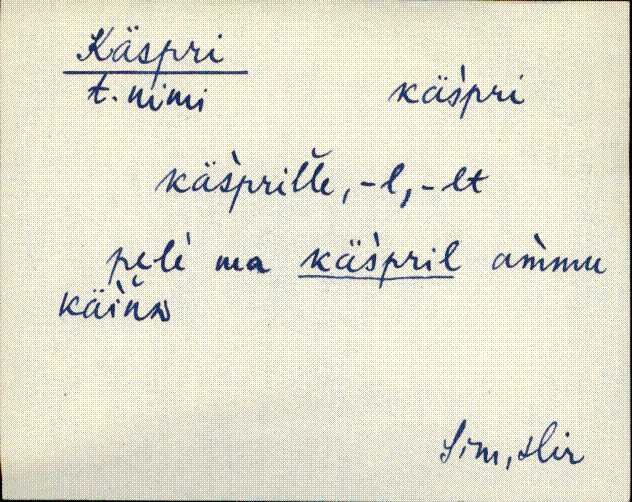 Käspri
t. nimi käs̀pri
käs̀prille, -l, -lt
peli ma käs̀pril am̀mu
käìnᴅ